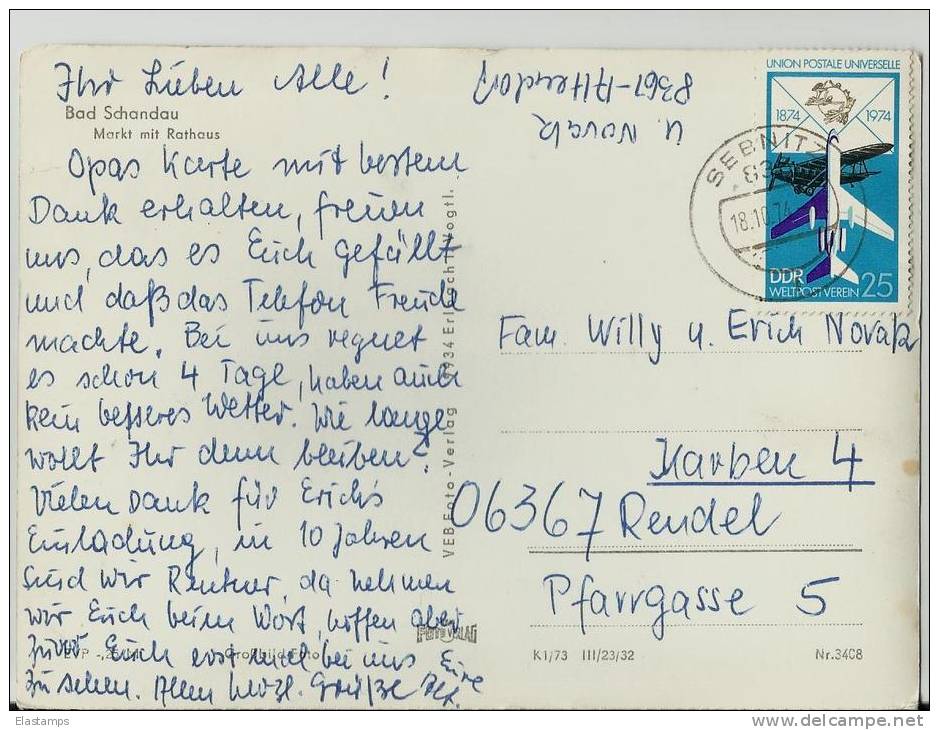 Ihr Lieben Alle!
Bad Schandau
Markt mit Rathaus
Opas Karte mit bestem
Dank erhalten, freuen
uns, das es Euch gefällt
und daß das Telefon Freude
machte. Bei uns regnet
es schon 4 Tage, haben auch
kein besseres Wetter. Wie lange
wollt Ihr denn bleiben?
Vielen Dank für Erichs
Einladung, in 10 Jahren
sind wir Rentner, da nehmen
wir Euch beim Wort, hoffen aber
zuvor Euch erst mal bei uns
zu sehen. Allen herzl. Grüße Eure
Großbild-Foto
VEB Foto-Verlag 9934 Erlbach Vogtl.
FOTO VERLAG
U. Novak
8361-Altendorf
SEBNITZ
18.10.74
UNION POSTALE UNIVERSELLE
1874 1974
DDR
WELTPOSTVEREIN 25
Fam. Willy u. Erich Novak
Karben 4
06367 Rendel
Pfarrgasse 5
K1/73 III/23/32 Nr.3408
Elastamps
www.delcampe.net